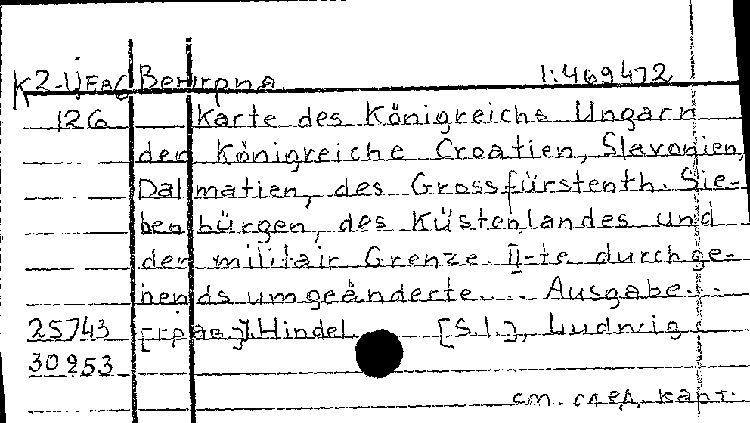 K2-Ц/Eag Венгрия 1:469472
126 Karte des Königreichs Ungarn
der Königreiche Croatien, Slavonien,
Dalmatien, des Grossfürstenth. Sie-
benbürgen, des Küstenlandes und
der militair Grenze II-te durchge-
hends umgeänderte... Ausgabe...
25743 [грав.] J. Hindel. [S.l.], Ludwig
30953
см. след. карт.